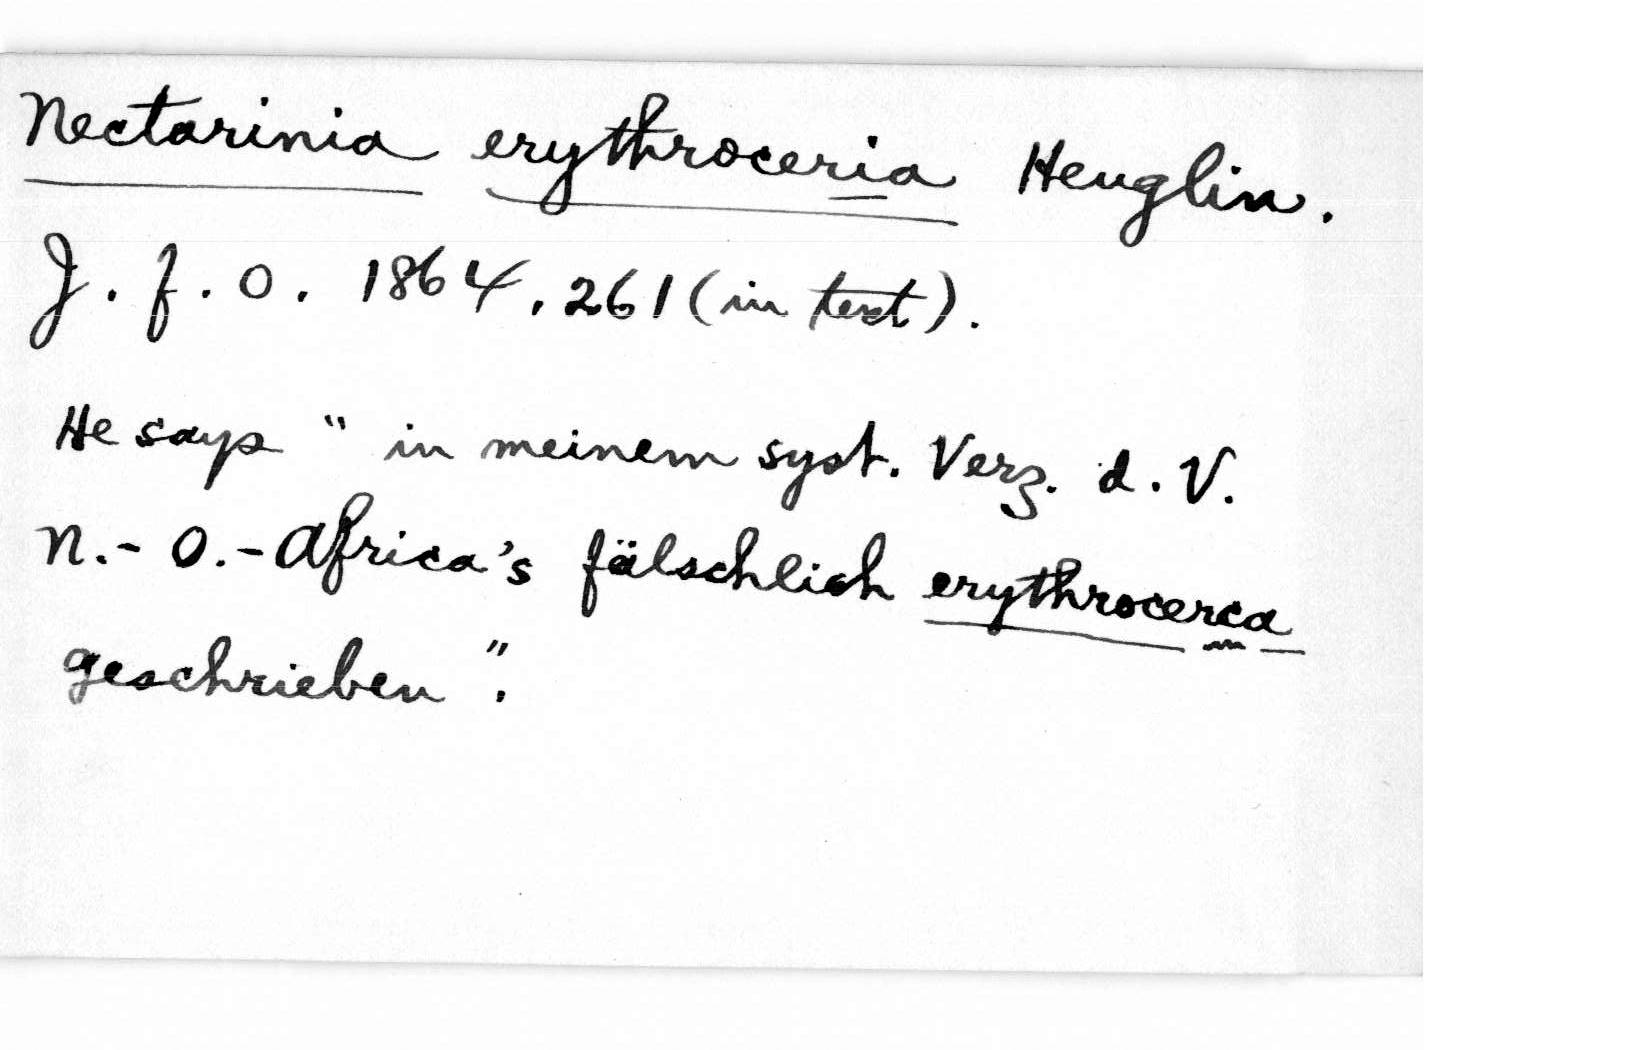 Nectarinia erythroceria Heuglin.
J. f. O. 1864, 261 (in text).
He says "in meinem syst. Verz. d. V.
N.-O.-Africa's fälschlich erythrocerca
geschrieben".